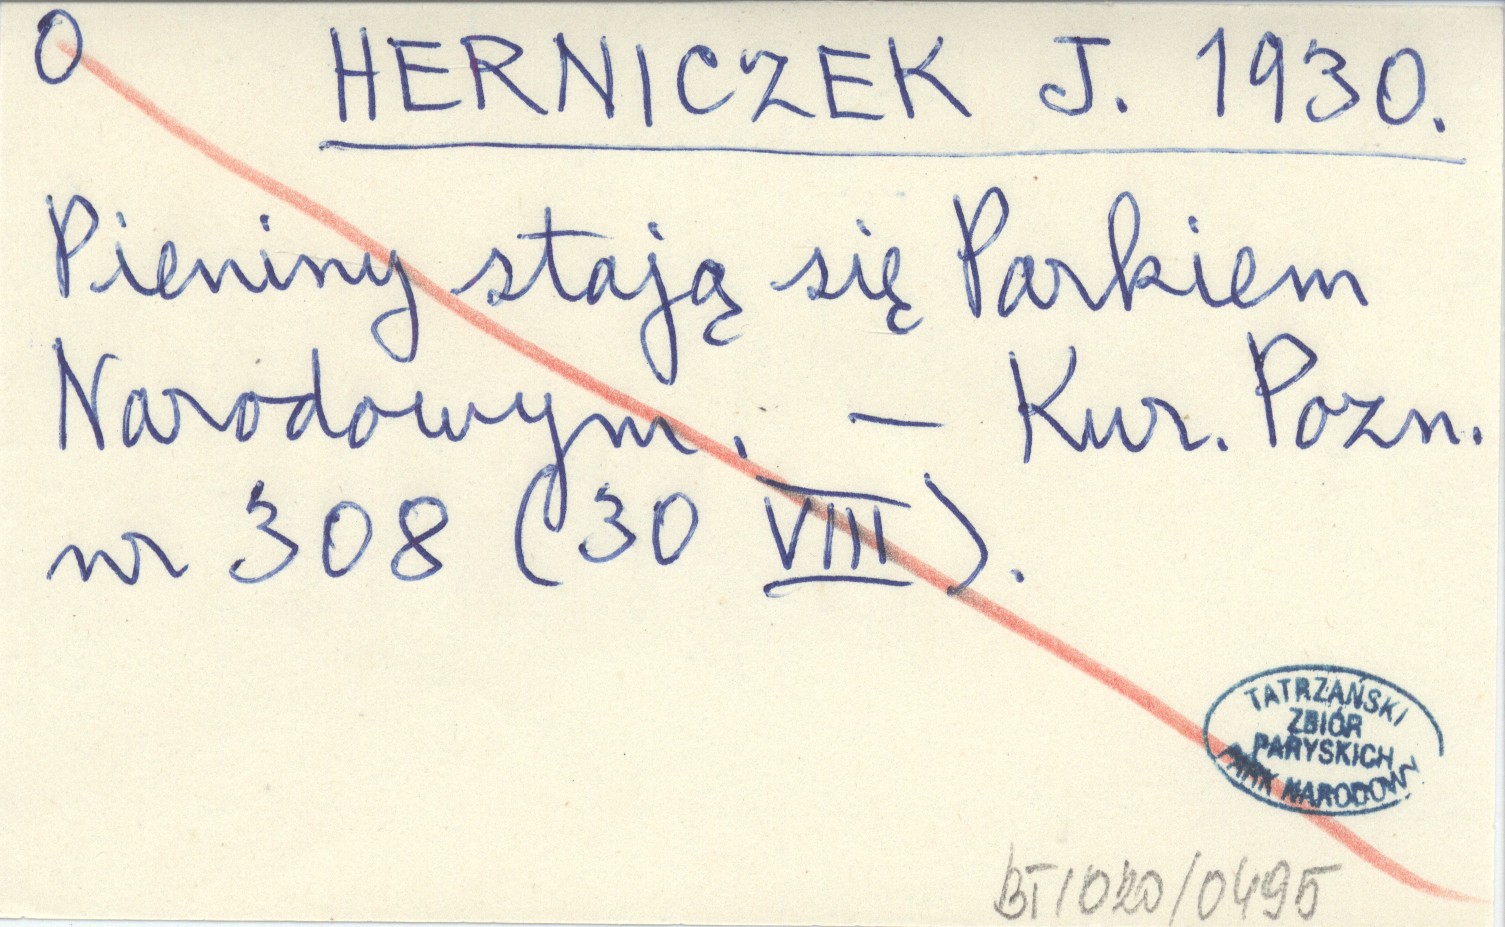 O HERNICZEK J. 1930.
Pieniny stają się Parkiem
Narodowym. — Kur. Pozn.
nr 308 (30 VIII).
TATRZAŃSKI
ZBIÓR
PARYSKICH
PARK NARODOWY
BT/020/0495